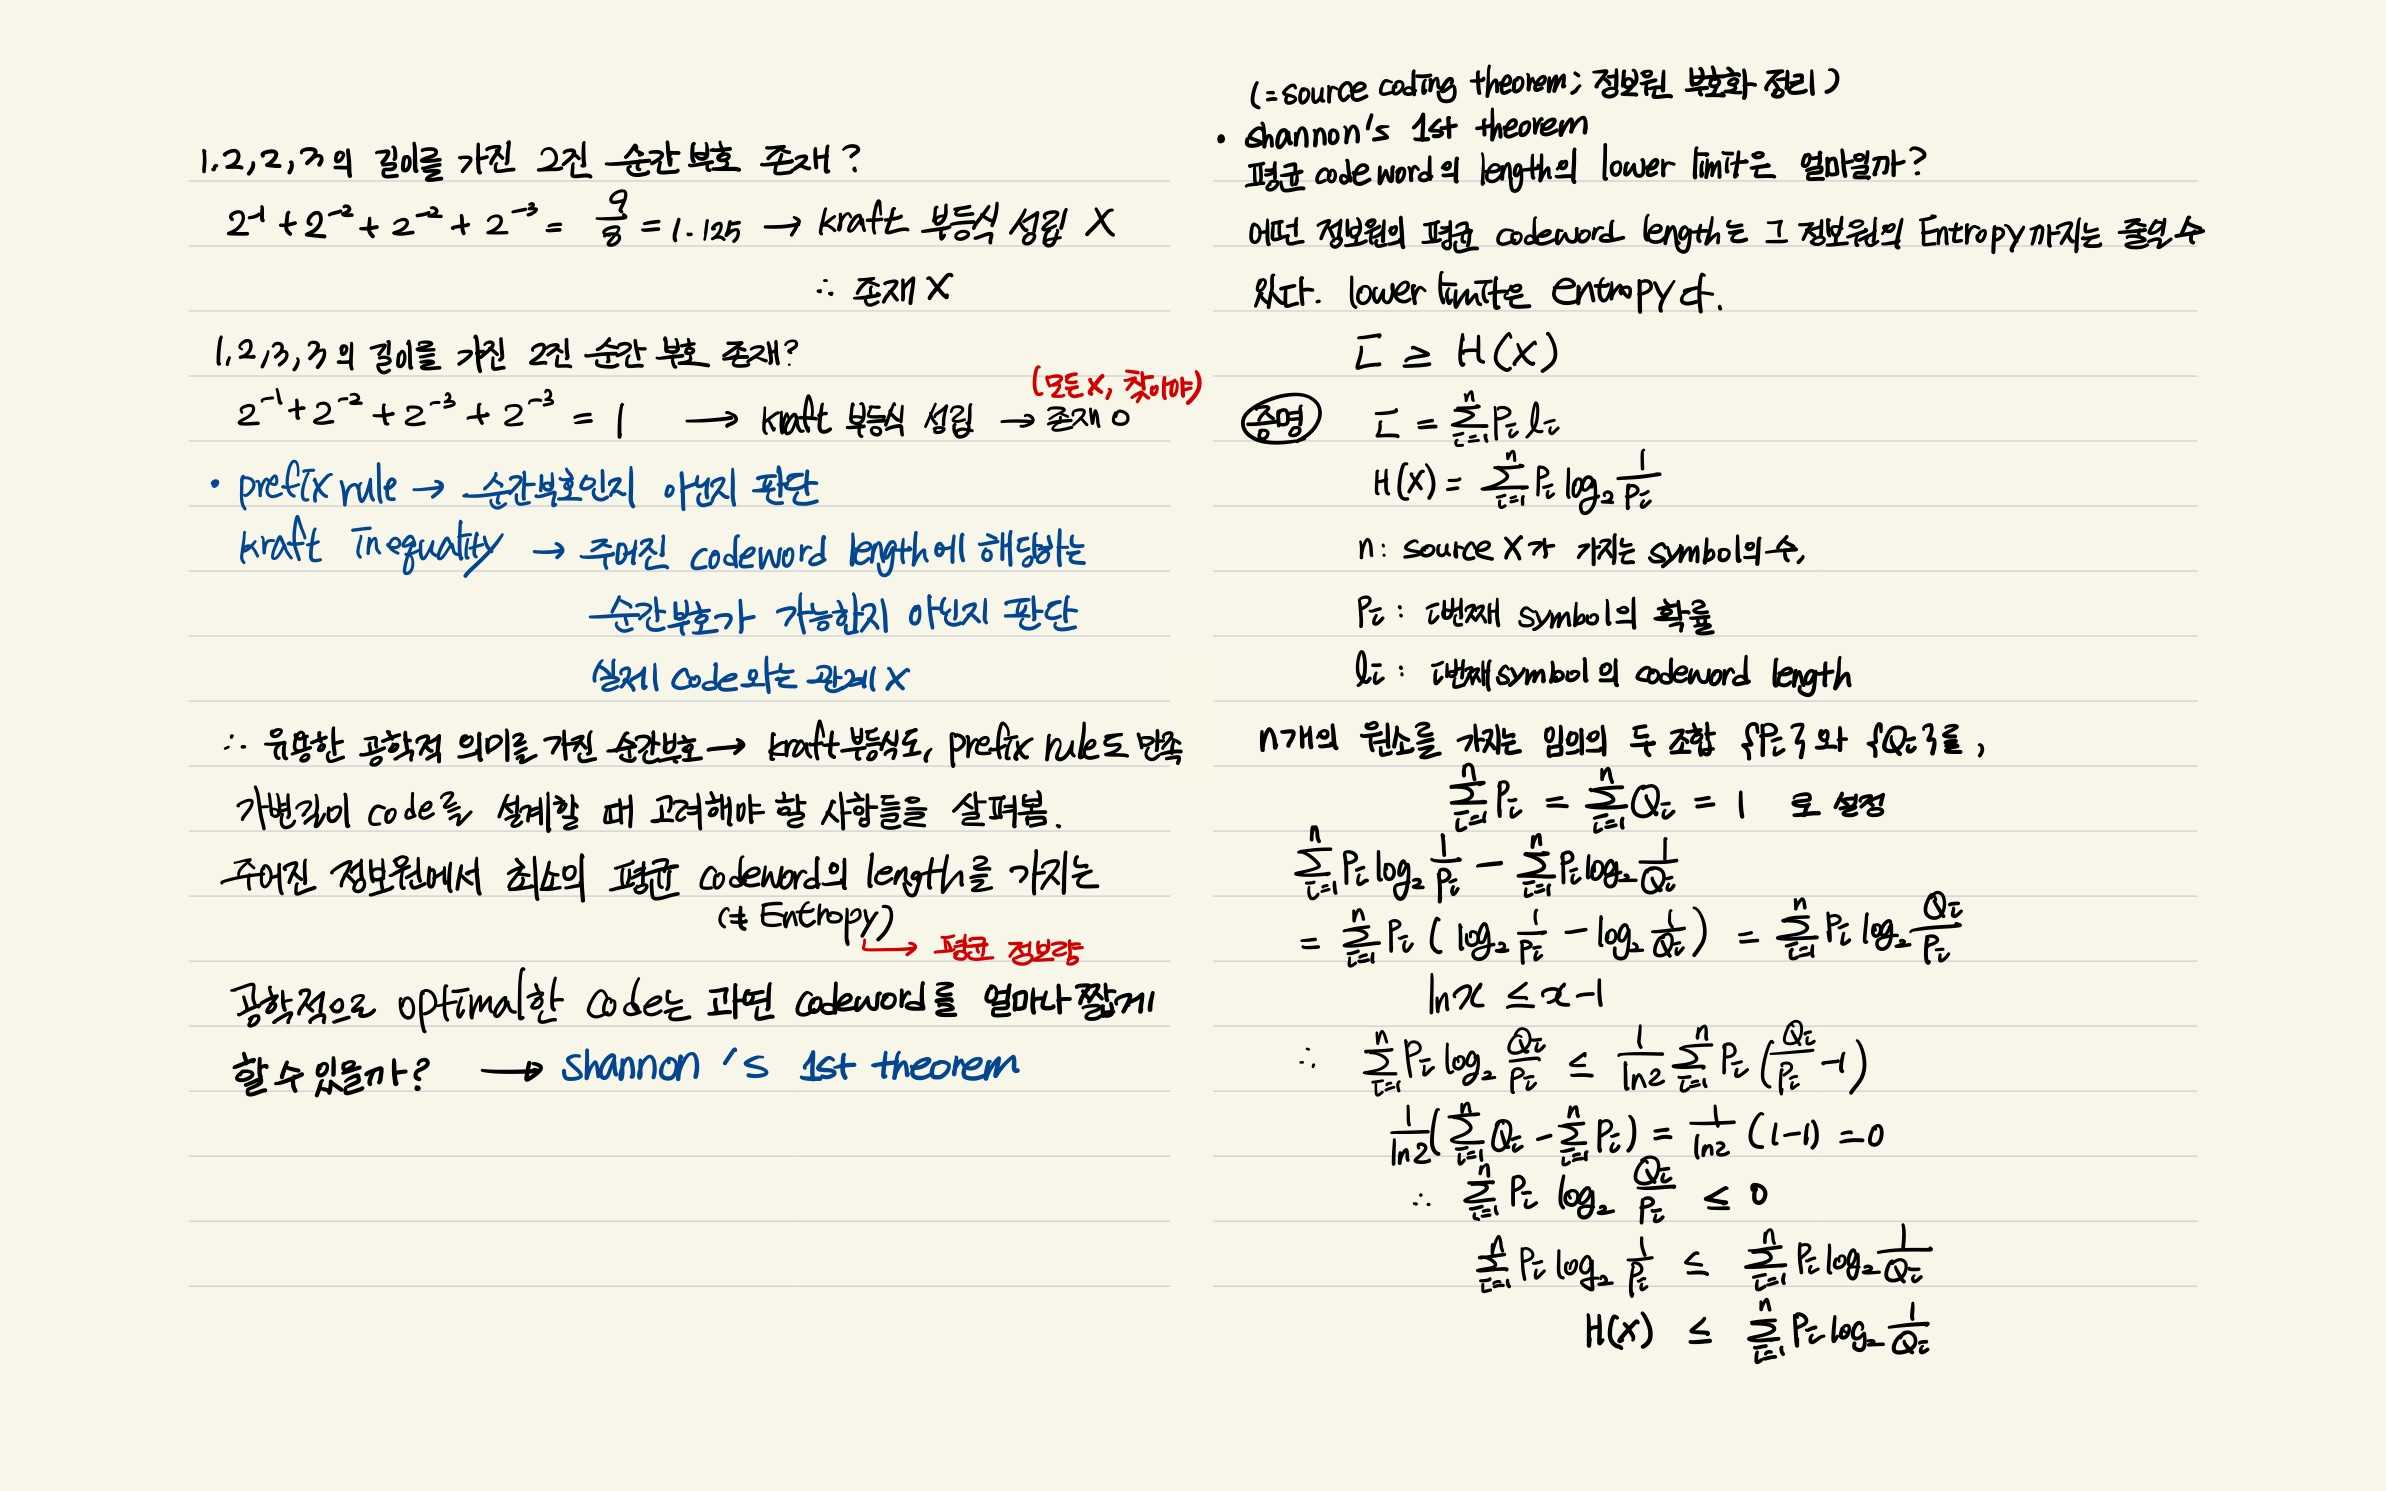 1, 2, 2, 3의 길이를 가진 2진 순간 부호 존재?
2⁻¹ + 2⁻² + 2⁻² + 2⁻³ = 9/8 = 1.125 → kraft 부등식 성립 X
∴ 존재 X
1, 2, 3, 3의 길이를 가진 2진 순간 부호 존재?
(모든 X, 찾아야)
2⁻¹ + 2⁻² + 2⁻³ + 2⁻³ = 1 → kraft 부등식 성립 → 존재 O
• prefix rule → 순간부호인지 아닌지 판단
kraft Inequality → 주어진 codeword length에 해당하는
순간부호가 가능한지 아닌지 판단
실제 code와는 관계 X
∴ 유용한 공학적 의미를 가진 순간부호 → kraft 부등식도, prefix rule도 만족
가변길이 code를 설계할 때 고려해야 할 사항들을 살펴봄.
주어진 정보원에서 최소의 평균 codeword의 length를 가지는
(≠ Entropy)
→ 평균 정보량
공학적으로 optimal한 code는 과연 codeword를 얼마나 짧게
할 수 있을까? → shannon's 1st theorem
(= source coding theorem; 정보원 부호화 정리)
• shannon's 1st theorem
평균 code word의 length의 lower limit은 얼마일까?
어떤 정보원의 평균 codeword length는 그 정보원의 Entropy까지는 줄일 수
있다. lower limit은 entropy다.
L̄ ≥ H(X)
증명 L̄ = Σᵢ₌₁ⁿ Pᵢ lᵢ
H(X) = Σᵢ₌₁ⁿ Pᵢ log₂ 1/Pᵢ
n: source X가 가지는 symbol의 수,
Pᵢ : i번째 symbol의 확률
lᵢ : i번째 symbol의 codeword length
n개의 원소를 가지는 임의의 두 조합 {Pᵢ}와 {Qᵢ}를,
Σᵢ₌₁ⁿ Pᵢ = Σᵢ₌₁ⁿ Qᵢ = 1 로 설정
Σᵢ₌₁ⁿ Pᵢ log₂ 1/Pᵢ − Σᵢ₌₁ⁿ Pᵢ log₂ 1/Qᵢ
= Σᵢ₌₁ⁿ Pᵢ (log₂ 1/Pᵢ − log₂ 1/Qᵢ) = Σᵢ₌₁ⁿ Pᵢ log₂ Qᵢ/Pᵢ
ln x ≤ x−1
∴ Σᵢ₌₁ⁿ Pᵢ log₂ Qᵢ/Pᵢ ≤ 1/ln2 Σᵢ₌₁ⁿ Pᵢ (Qᵢ/Pᵢ − 1)
1/ln2 (Σᵢ₌₁ⁿ Qᵢ − Σᵢ₌₁ⁿ Pᵢ) = 1/ln2 (1−1) = 0
∴ Σᵢ₌₁ⁿ Pᵢ log₂ Qᵢ/Pᵢ ≤ 0
Σᵢ₌₁ⁿ Pᵢ log₂ 1/Pᵢ ≤ Σᵢ₌₁ⁿ Pᵢ log₂ 1/Qᵢ
H(X) ≤ Σᵢ₌₁ⁿ Pᵢ log₂ 1/Qᵢ